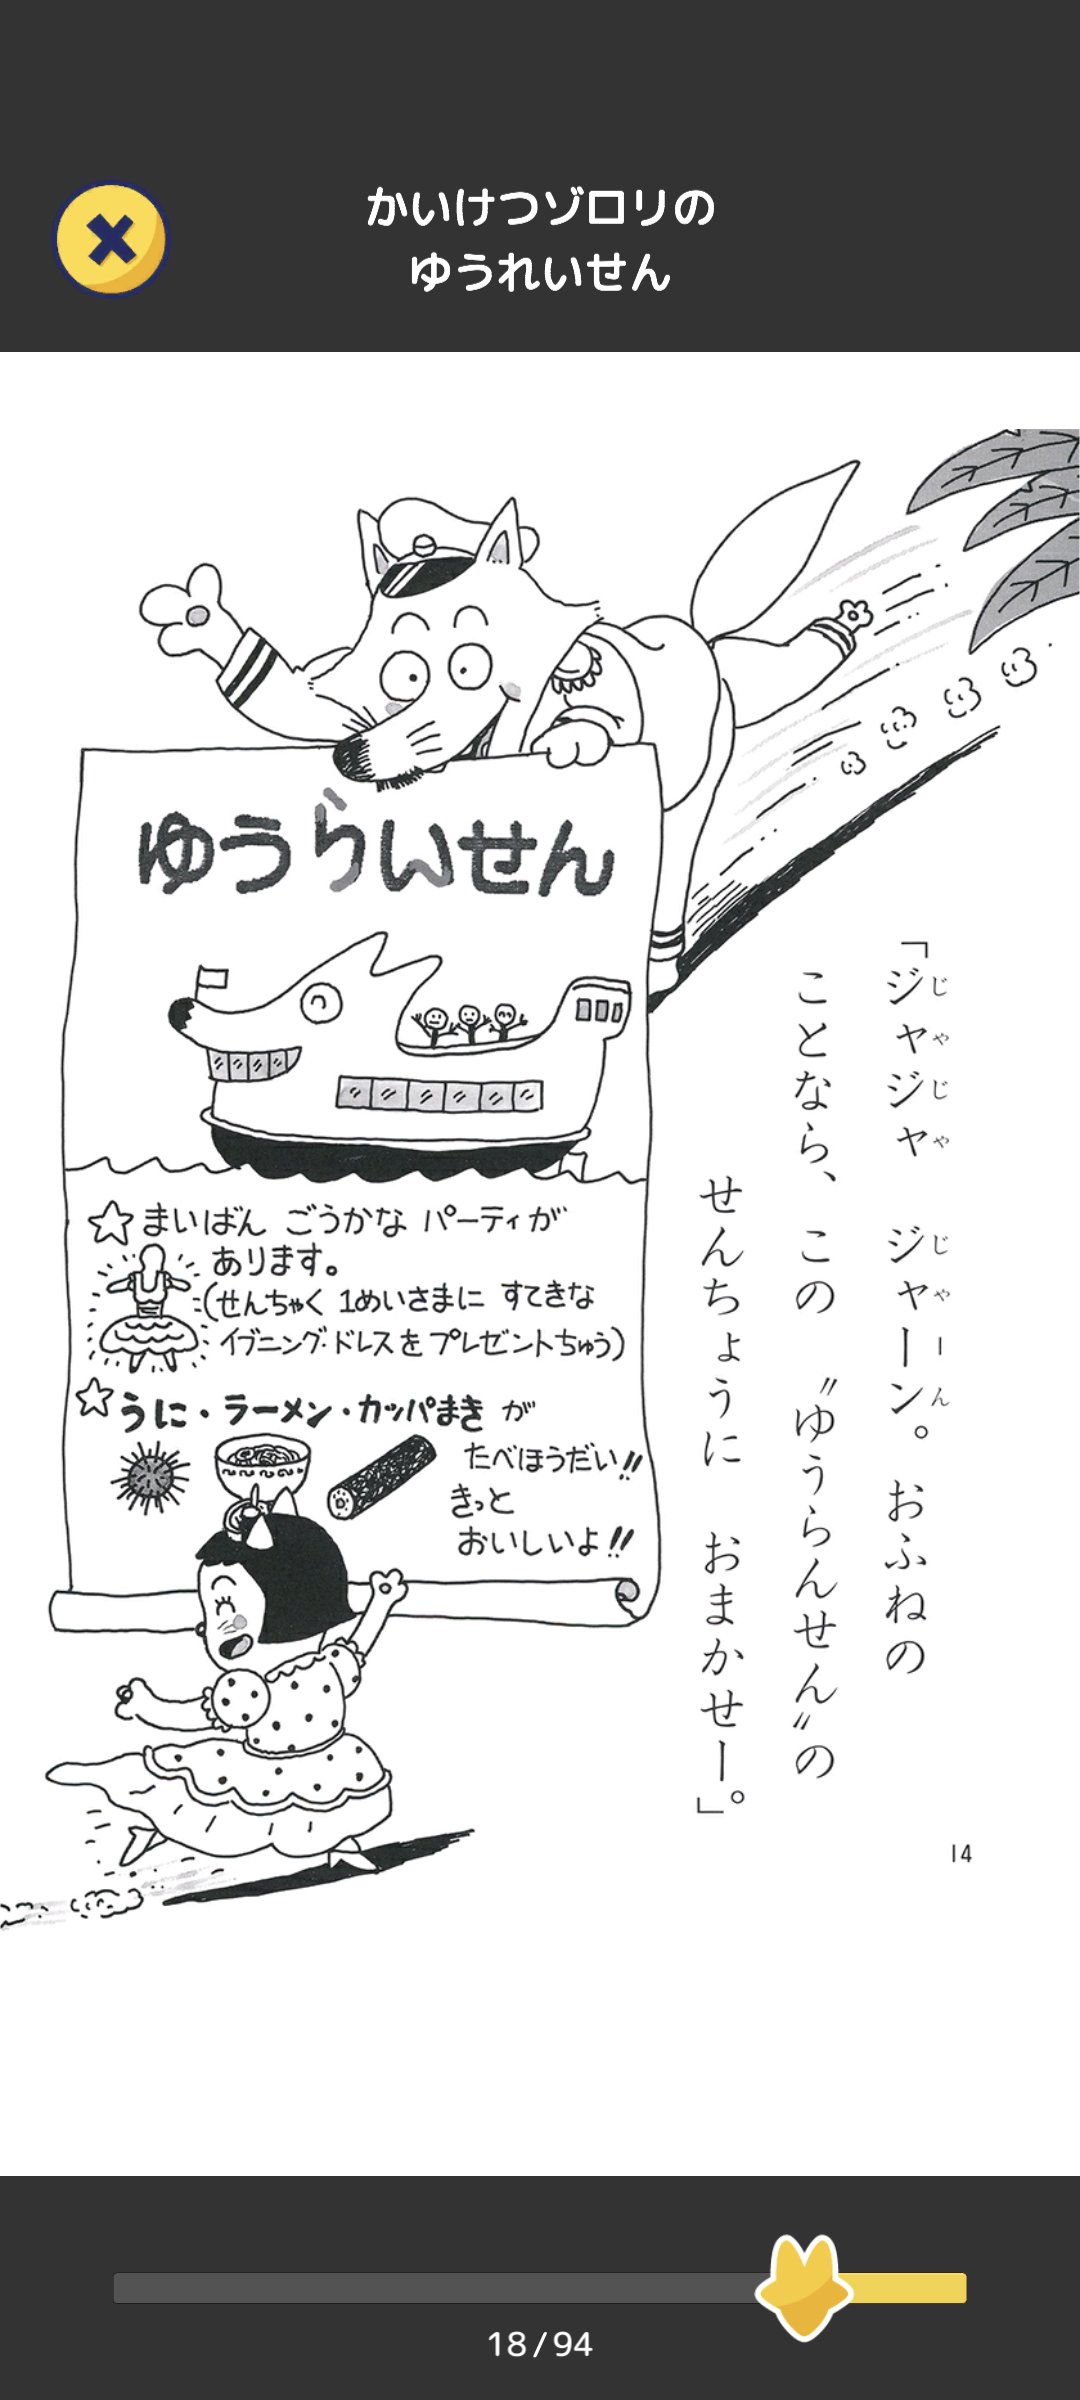 かいけつゾロリの
ゆうれいせん
「ジャジャ ジャーン。 おふねの
じゃじゃ じゃーん
ことなら、 この 〝ゆうらんせん〟の
せんちょうに おまかせー。」
ゆうらんせん
☆まいばん ごうかな パーティが
あります。
(せんちゃく 1めいさまに すてきな
イブニング・ドレスを プレゼントちゅう)
☆うに・ラーメン・カッパまき が
たべほうだい!!
きっと
おいしいよ!!
14
18/94